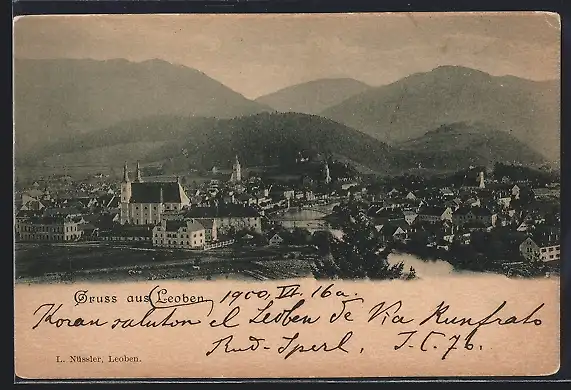 Gruss aus Leoben, 1900 VI. 16a.
Koran saluton el Leoben de Via Kunfrato
Rud. Sperl, I.C. 76.
L. Nüssler, Leoben.